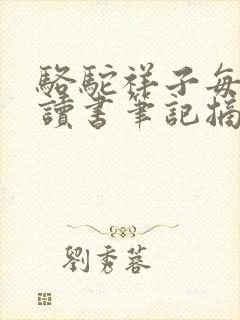 駱駝祥子每
讀書筆記摘
劉秀蓉